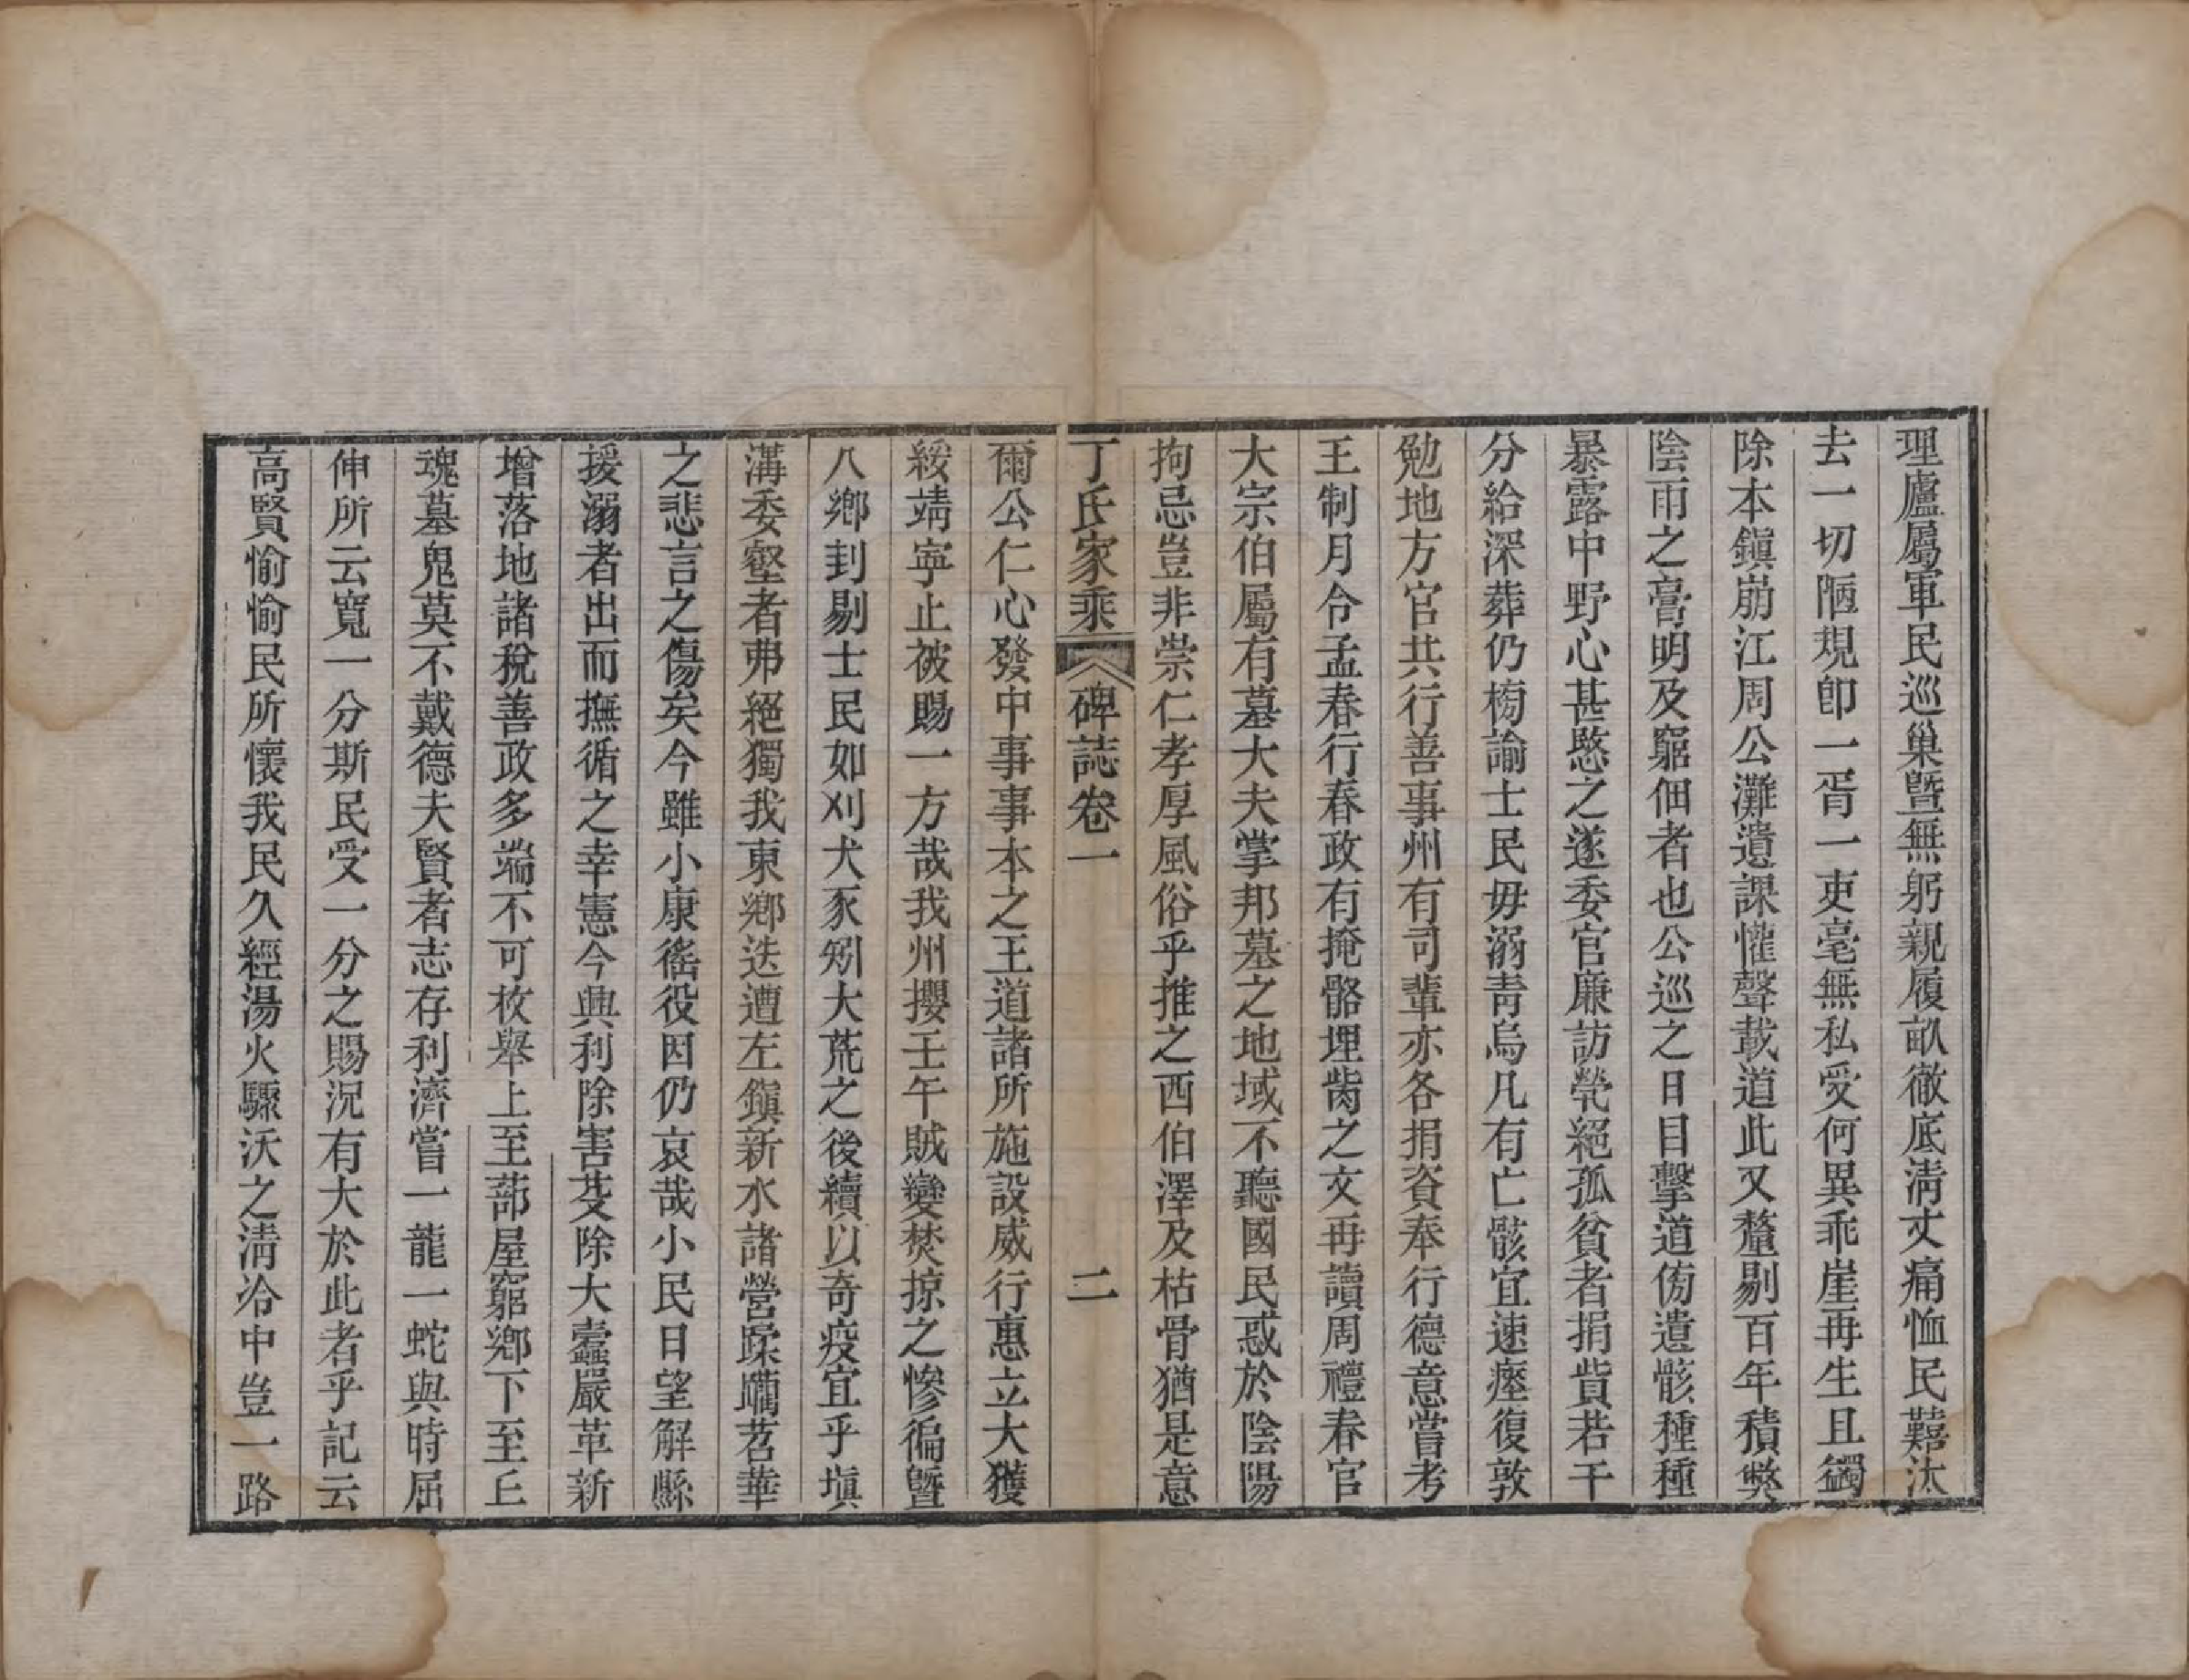 理廬屬軍民巡巢曁無躬親履畝徹底淸丈痛恤民囏汰
去一切陋規卽一胥一吏毫無私受何異乖崖再生且蠲
除本鎭崩江周公灘遺課懽聲載道此又釐剔百年積獘
陰雨之膏明及窮佃者也公巡之日目擊道傍遺骸種種
暴露中野心甚愍之遂委官廉訪煢絕孤貧者捐貲若干
分給深葬仍榜諭士民毋溺靑烏凡有亡骸宜速瘞復敦
勉地方官共行善事州有司輩亦各捐資奉行德意嘗考
王制月令孟春行春政有掩骼埋胔之文再讀周禮春官
大宗伯屬有墓大夫掌邦墓之地域不聽國民惑於陰陽
拘忌豈非崇仁孝厚風俗乎推之西伯澤及枯骨猶是意
丁氏家乘 碑誌卷一 二
爾公仁心發中事事本之王道諸所施設威行惠立大獲
綏靖寧止被賜一方哉我州攖壬午賊變焚掠之慘徧曁
八鄕刲剔士民如刈犬豕矧大荒之後續以奇疫宜乎塡
溝委壑者弗絕獨我東鄕迭遭左鎭新水諸營蹂躪苕華
之悲言之傷矣今雖小康徭役因仍哀哉小民日望解縣
援溺者出而撫循之幸憲今典利除害芟除大蠹嚴革新
增落地諸稅善政多端不可枚舉上至蔀屋窮鄕下至丘
魂墓鬼莫不戴德夫賢者志存利濟嘗一龍一蛇與時屈
伸所云寬一分斯民受一分之賜況有大於此者乎記云
高賢愉愉民所懷我民久經湯火驟沃之淸泠中豈一路